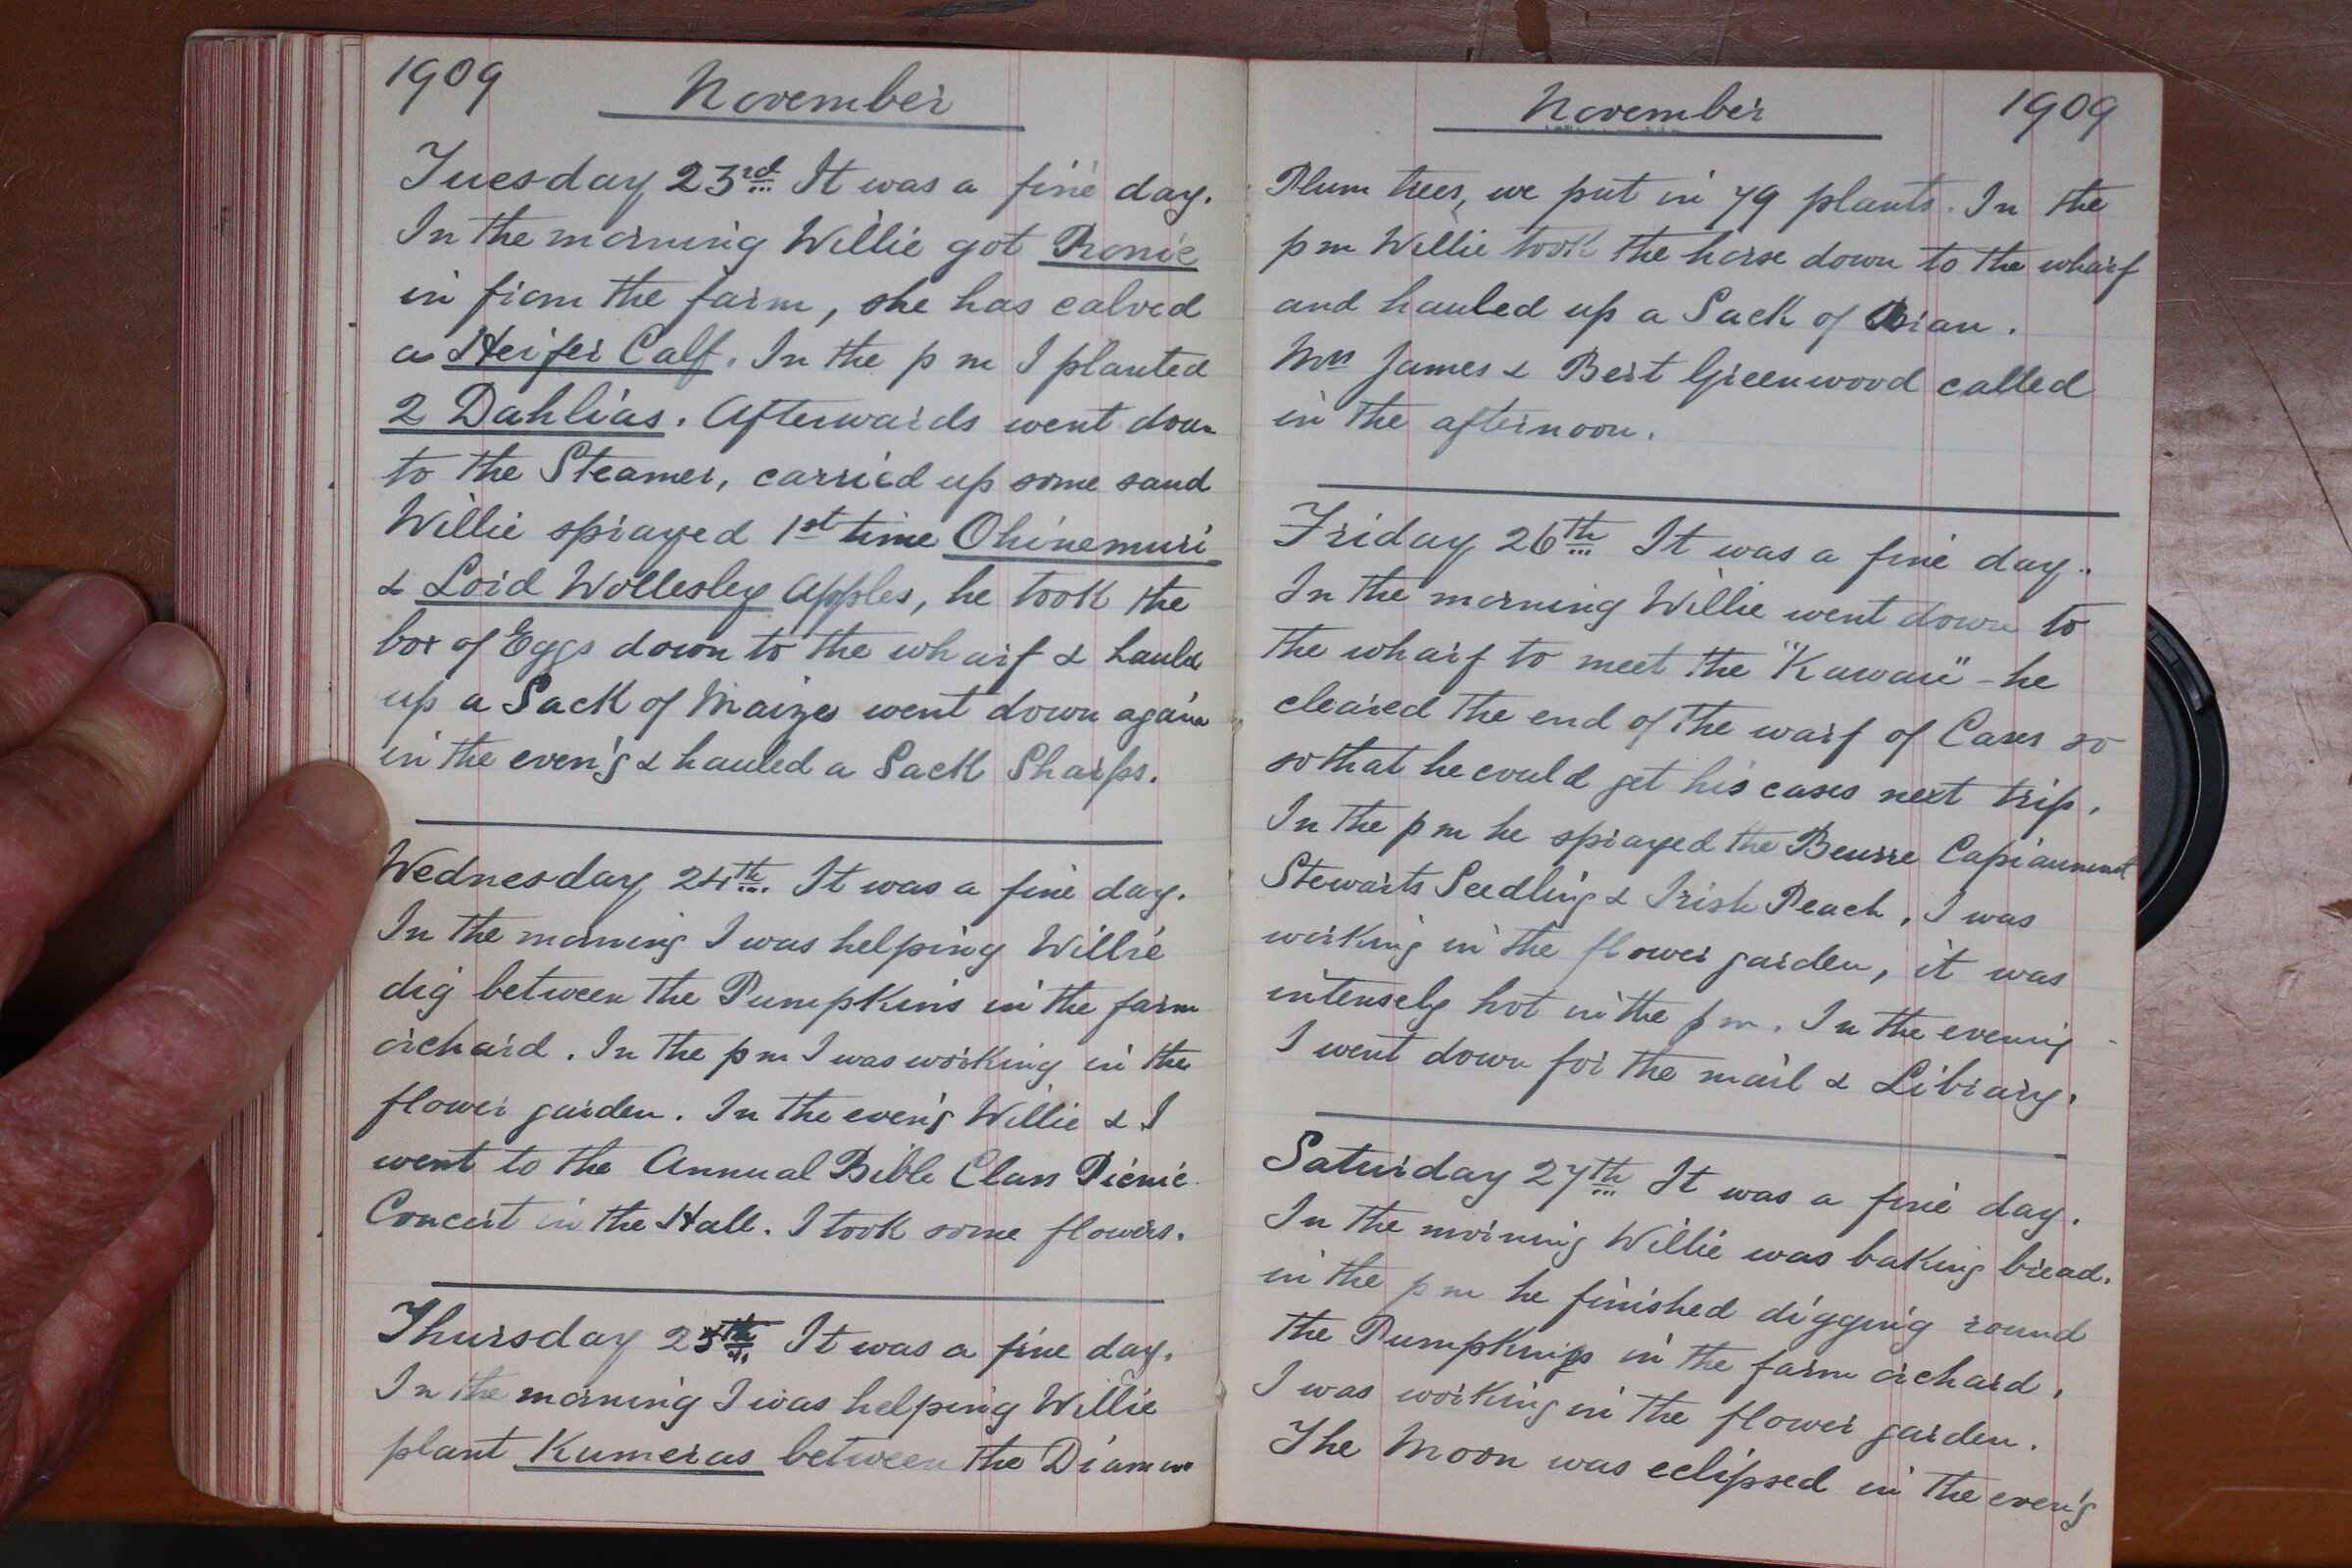 1909 November
Tuesday 23rd It was a fine day.
In the morning Willie got Ronie
in from the farm, she has calved
a Heifer Calf. In the p m I planted
2 Dahlias. Afterwards went down
to the Steamer, carried up some sand
Willie sprayed 1st time Ohinemuri
& Lord Wollesley Apples, he took the
box of Eggs down to the wharf & hauled
up a Sack of Maize went down again
in the even'g & hauled a Sack Sharps.
Wednesday 24th. It was a fine day.
In the morning I was helping Willie
dig between the Pumpkins in the farm
orchard. In the p m I was working in the
flower garden. In the even'g Willie & I
went to the Annual Bible Class Picnic
Concert in the Hall. I took some flowers.
Thursday 25th It was a fine day.
In the morning I was helping Willie
plant Kumeras between the
November 1909
Plum trees, we put in 79 plants. In the
p m Willie took the horse down to the wharf
and hauled up a Sack of Bran.
Mrs James & Bert Greenwood called
in the afternoon.
Friday 26th It was a fine day.
In the morning Willie went down to
the wharf to meet the "Kawau" - he
cleared the end of the warf of Cases so
so that he could get his cases next trip.
In the p m he sprayed the Beurre Capiaumont
Stewarts Seedling & Irish Peach. I was
working in the flower garden, it was
intensely hot in the p m. In the evening
I went down for the mail & Library.
Saturday 27th It was a fine day.
In the morning Willie was baking bread.
in the p m he finished digging round
the Pumpkins in the farm orchard.
I was working in the flower garden.
The Moon was eclipsed in the even'g